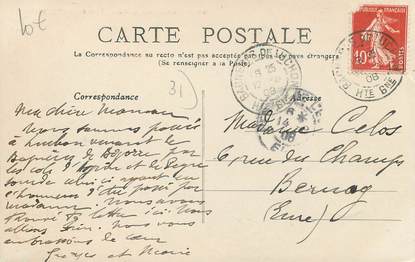 lot
CARTE POSTALE
La Correspondance au recto n'est pas acceptée par tous les pays étrangers
(Se renseigner à la Poste)
RÉPUBLIQUE FRANÇAISE
10
Correspondance
31
Adresse
Ma chère Maman
Nous sommes passés
à Luchon venant de
Bagnères de Bigorre
les cols d'Aspin et de Peyre
sourde
l'honneur
Nous avons
trouvé ta lettre ici. Nous
allons bien. Nous vous
embrassons de cœur
Georges et Marie
Madame Celos
6, rue des Champs
Bernay
(Eure)
BAGNÈRES DE LUCHON
08
HTE GNE
14
08